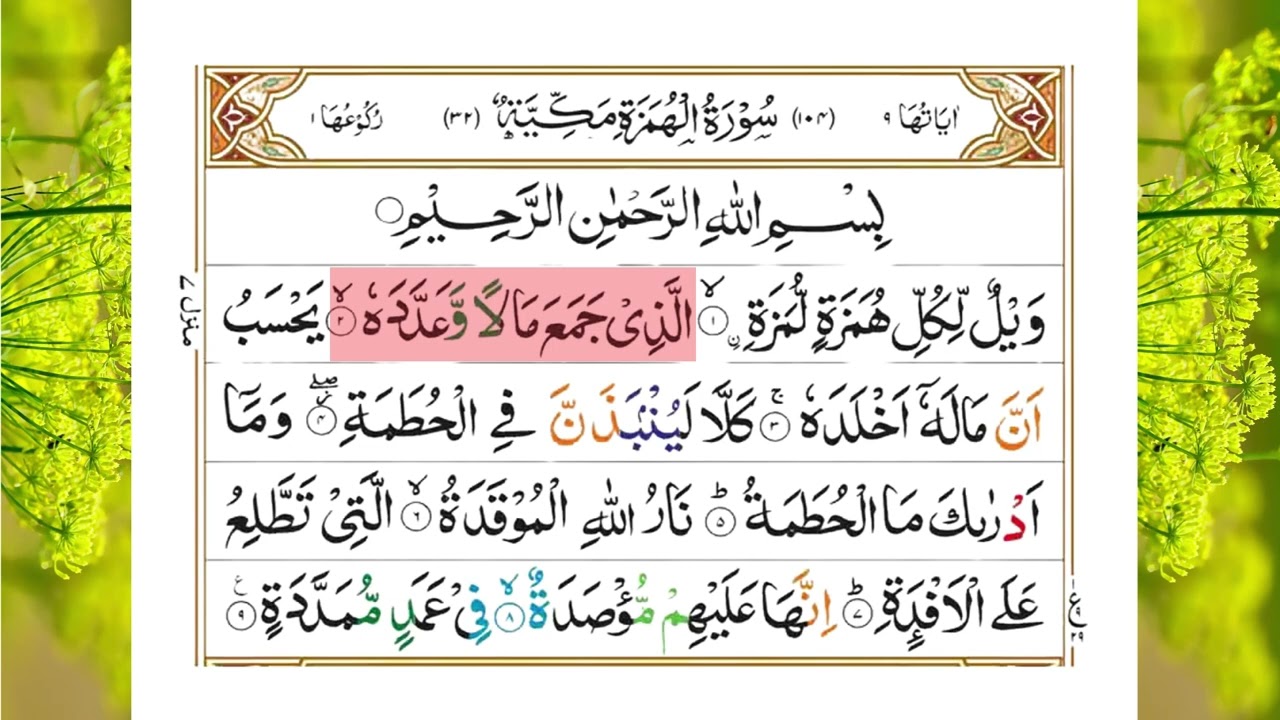 اٰيَاتُهَا ٩ (١٠٤) سُوْرَةُ الْهُمَزَةِ مَكِّيَّةٌ (٣٢) رُكُوْعُهَا ١
بِسْمِ اللّٰهِ الرَّحْمٰنِ الرَّحِيْمِ
وَيْلٌ لِّكُلِّ هُمَزَةٍ لُّمَزَةِ ۙ﴿١﴾ ۨالَّذِىْ جَمَعَ مَالًا وَّعَدَّدَهٗ ۙ﴿٢﴾ يَحْسَبُ
اَنَّ مَالَهٗۤ اَخْلَدَهٗ ۚ﴿٣﴾ كَلَّا لَيُنْۢبَذَنَّ فِى الْحُطَمَةِ ۖ﴿٤﴾ وَمَاۤ
اَدْرٰٮكَ مَا الْحُطَمَةُ ؕ﴿٥﴾ نَارُ اللّٰهِ الْمُوْقَدَةُ ۙ﴿٦﴾ الَّتِىْ تَطَّلِعُ
عَلَى الْاَفْـِٕدَةِ ؕ﴿٧﴾ اِنَّهَا عَلَيْهِمْ مُّؤْصَدَةٌ ۙ﴿٨﴾ فِىْ عَمَدٍ مُّمَدَّدَةٍ ﴿٩﴾ ع
منزل ٧
ع ٢٩